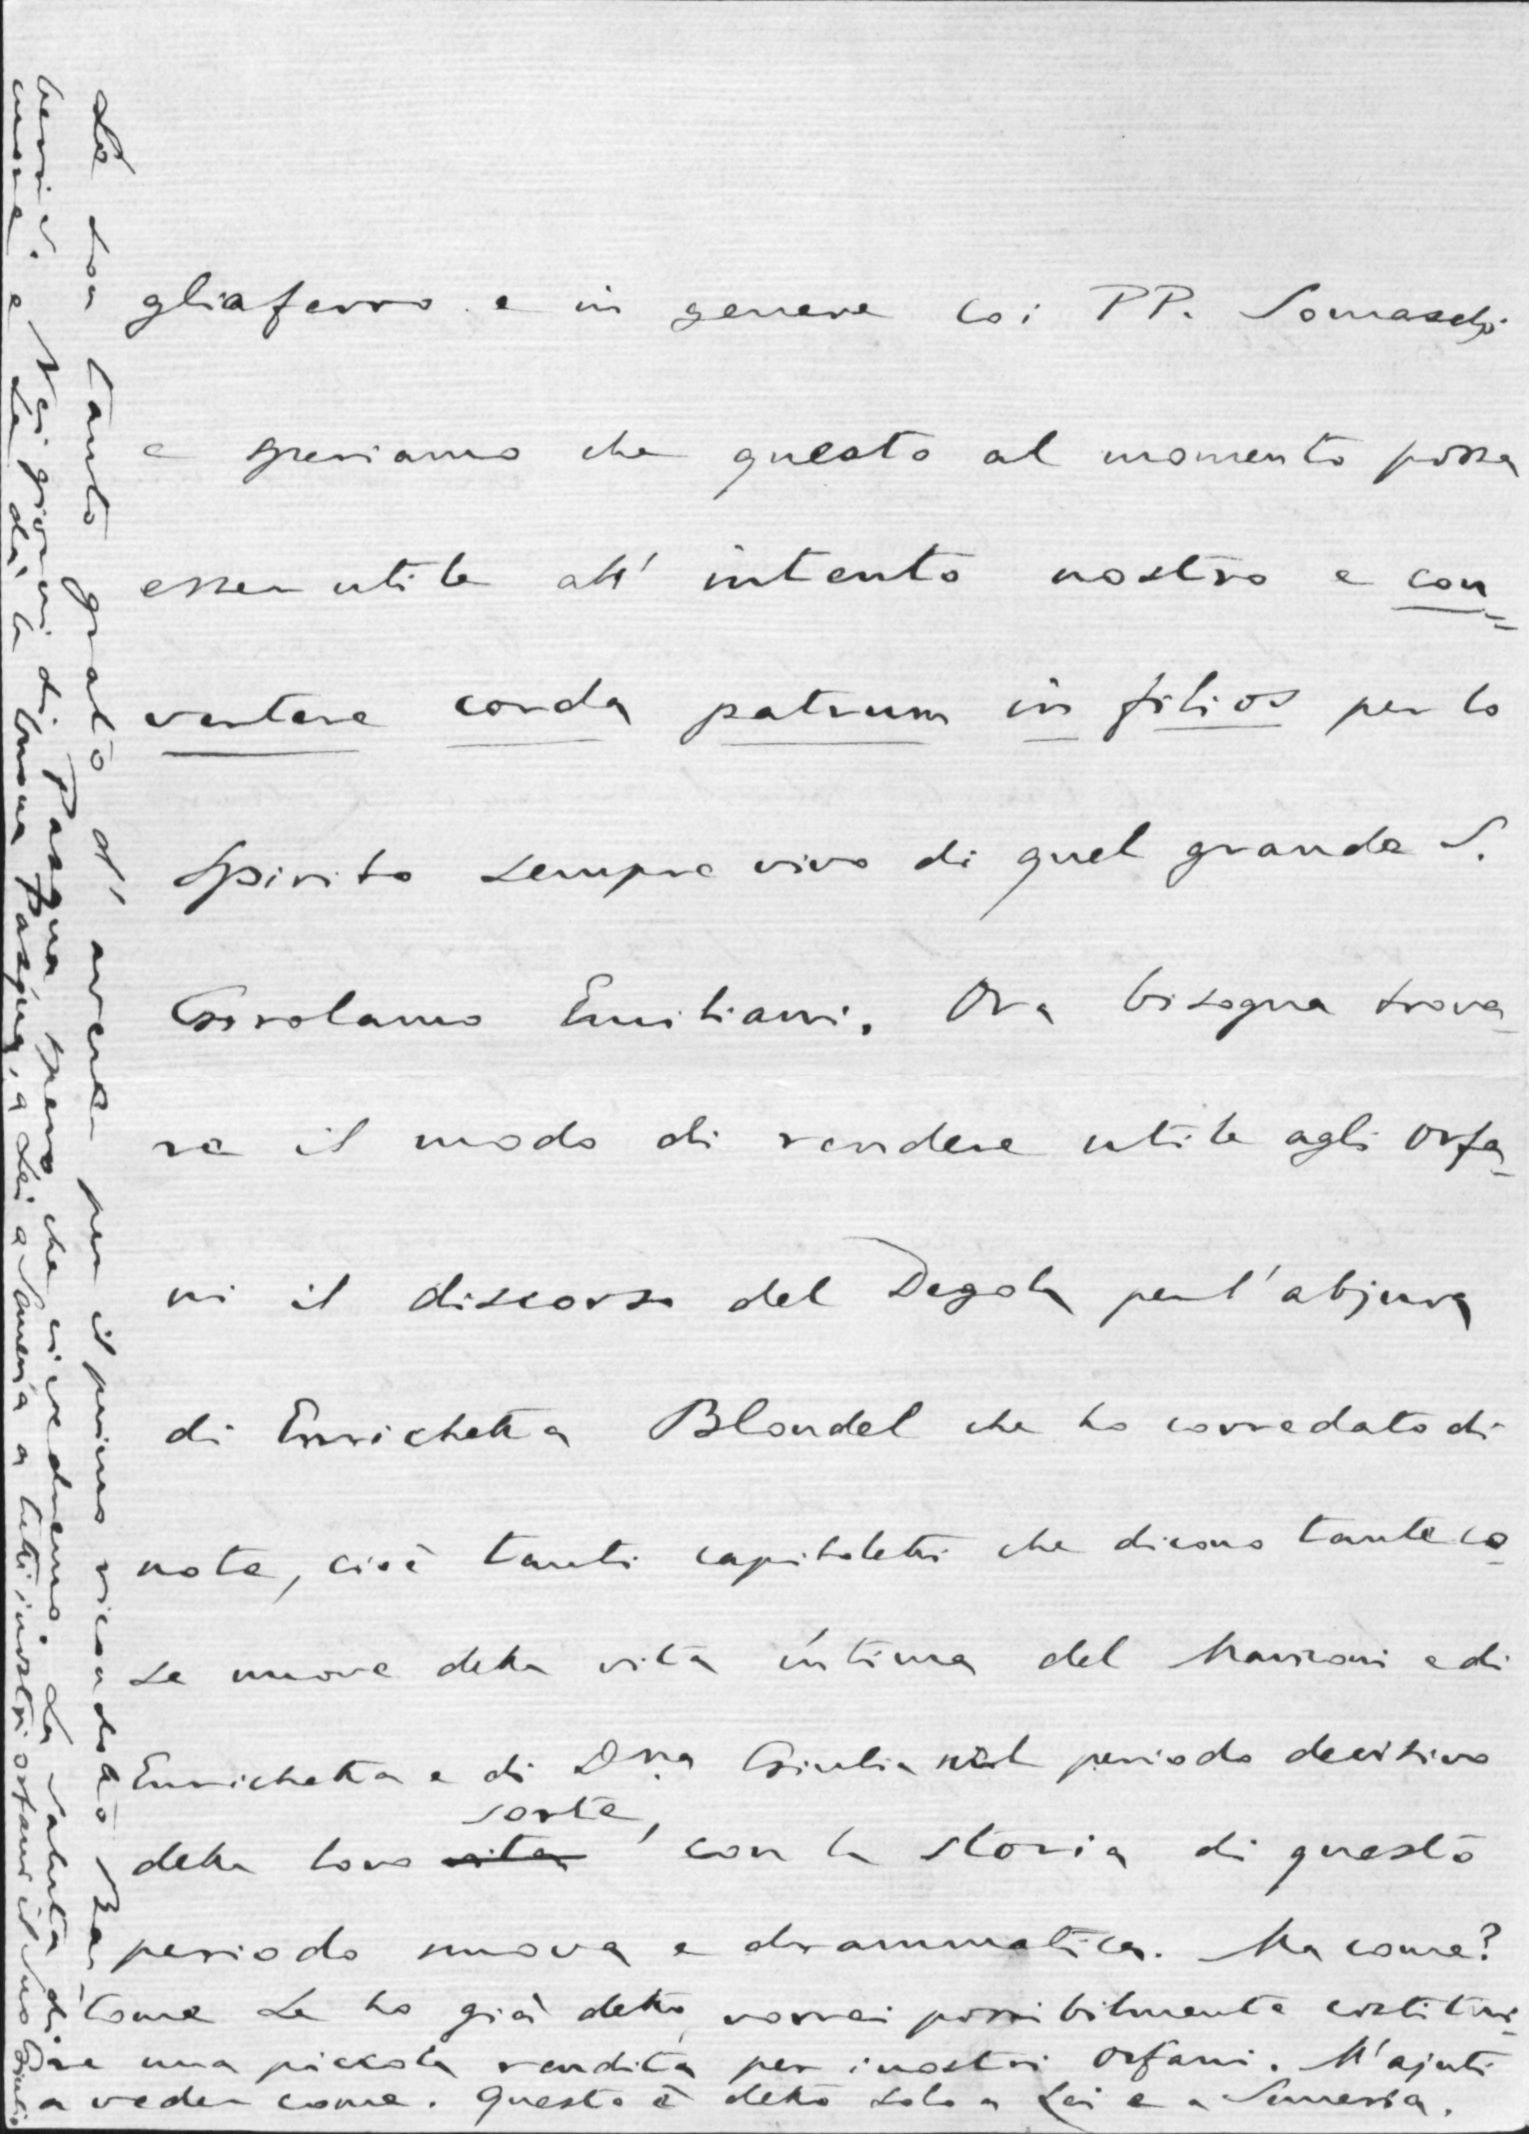 gliaferro e in genere coi PP. Somaschi
e speriamo che questo al momento possa
esser utile all' intento nostro e con=
vertere corda patrum in filios per lo
Spirito sempre vivo di quel grande S.
Girolamo Emiliani. Ora bisogna trova-
re il modo di rendere utile agli orfa-
ni il discorso del Degola per l'abjura
di Enrichetta Blondel che ho corredato di
note, cioè tanti capitoletti che dicono tante co-
se nuove della vita íntima del Manzoni e di
Enrichetta e di D.na Giulia nel periodo decisivo
della loro vita sorte, con la storia di questo
periodo nuova e drammatica. Ma come?
Come Le ho già detto, vorrei possibilmente costitui-
re una piccola rendita per i nostri orfani. M'ajuti
a veder come. Questo è detto solo a Lei e a Semeria.
Le son tanto grato d' avermi per il primo ricordato
bervi. Nei giorni di Pasqua spero che ci vedremo. La saluta di
cuore e Le dà la buona Pasqua, a Lei a Semeria a tutti i nostri orfani il suo Giulio